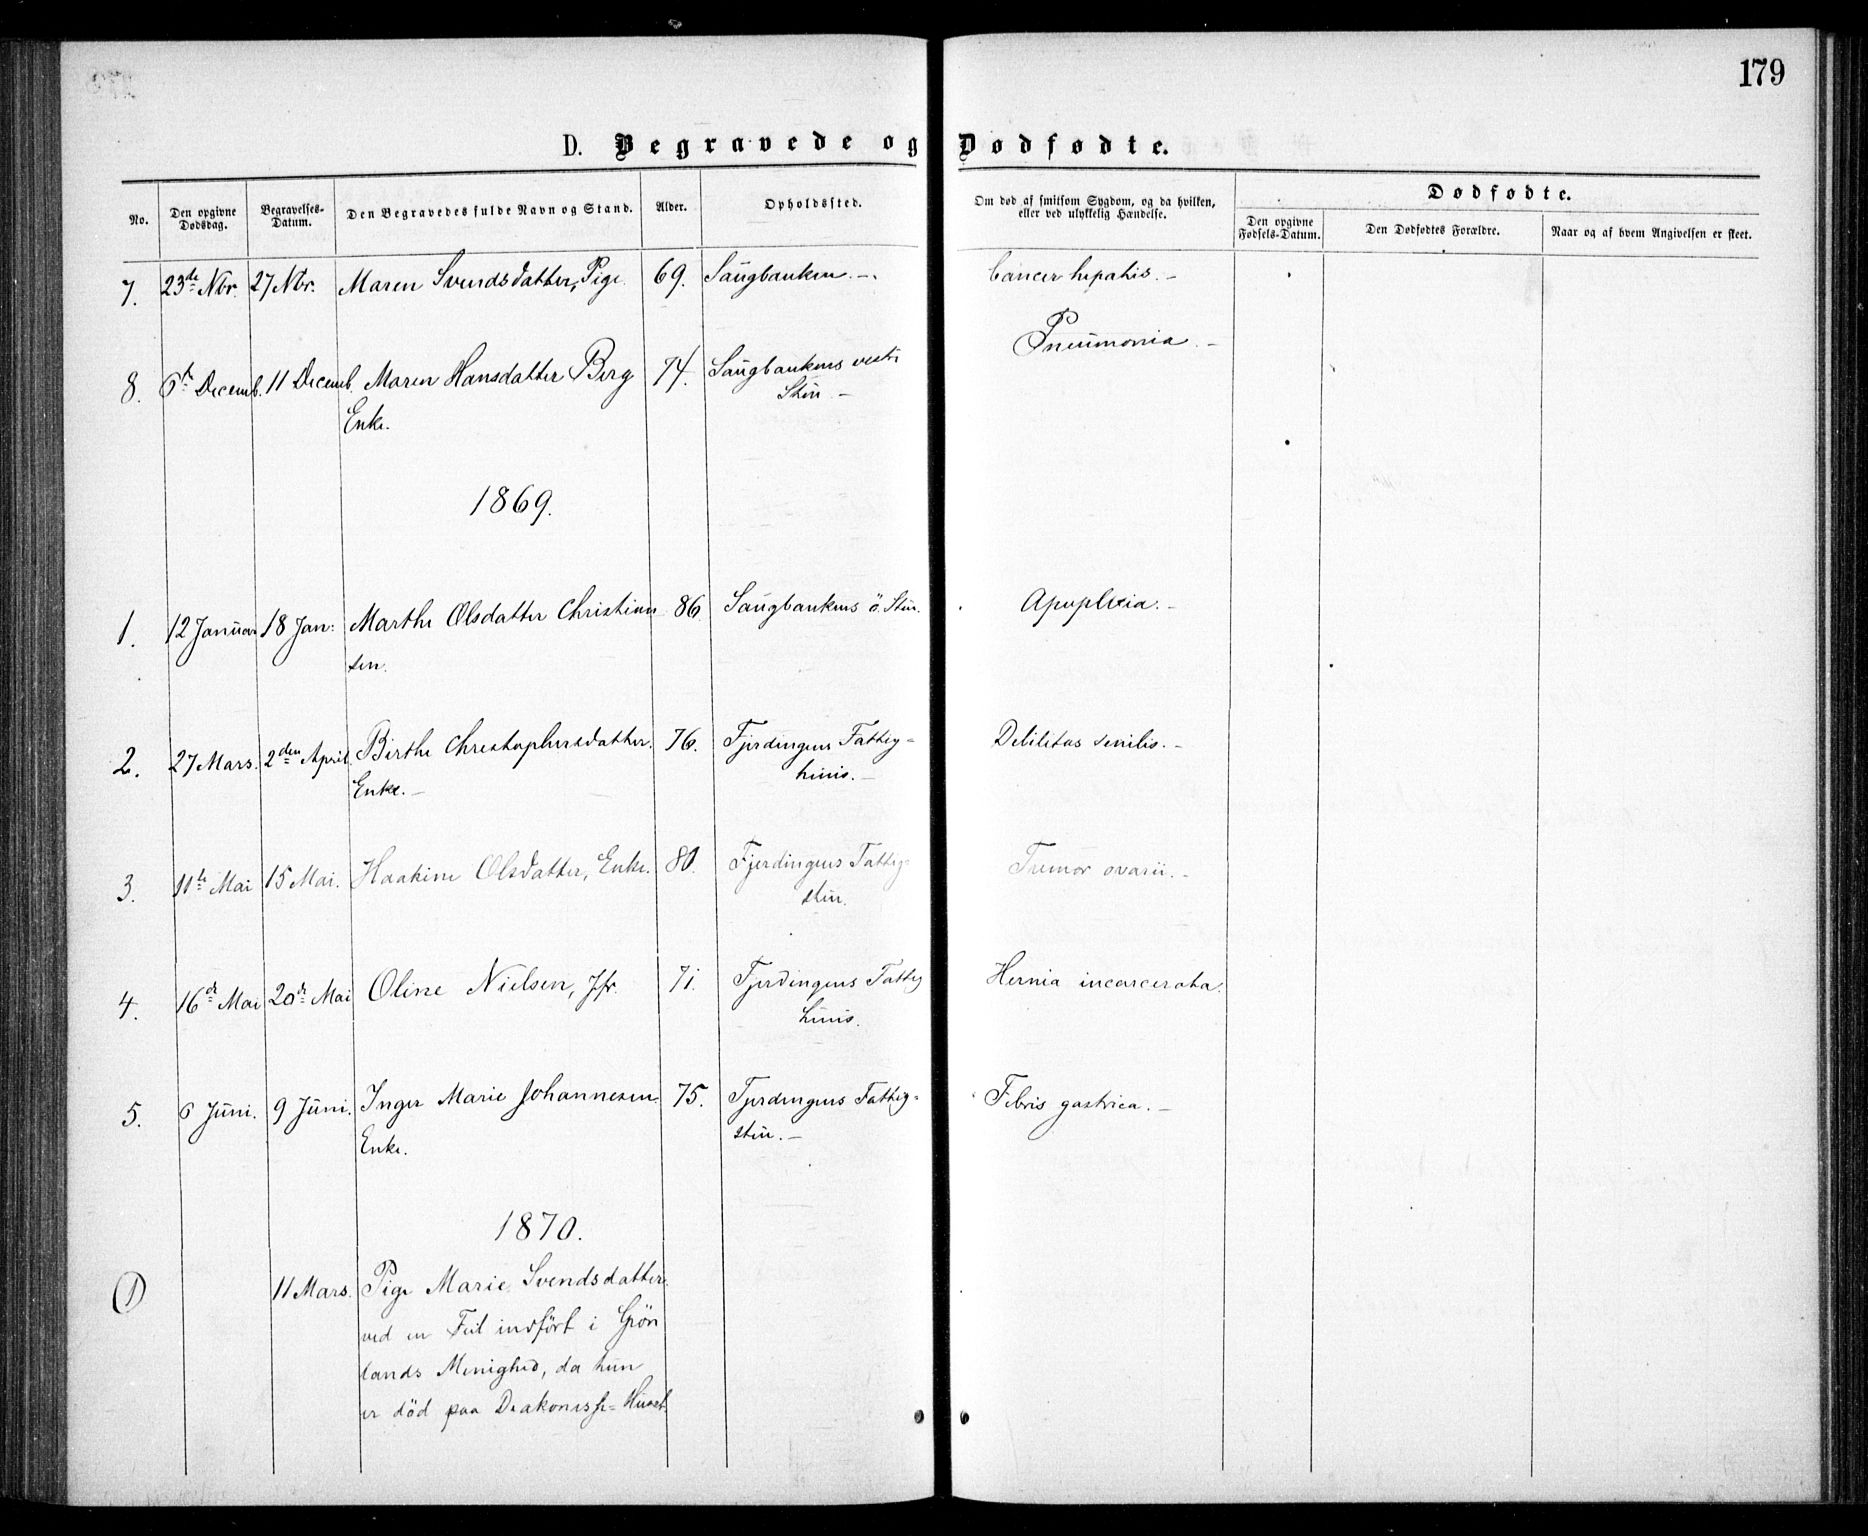 179
D. Begravede og Dødfødte.
No. Den opgivne Dødsdag. Begravelses-Datum. Den Begravedes fulde Navn og Stand. Alder. Opholdssted. Om død af smitsom Sygdom, og da hvilken, eller ved ulykkelig Hændelse. Dødfødte.
Den opgivne Fødsels-Datum. Den Dødfødtes Forældre. Naar og af hvem Angivelsen er skeet.
7. 23de Nbr. 27 Nbr. Maren Svendsdatter, Pige. 69. Saugbanken. – Cancer hepatis. –
8. 6te Decemb. 11 Decemb. Maren Hansdatter Berg 74. Saugbankens vestre Pneumonia. –
Enke. Stue. –
1869.
1. 12 Januar 18 Jan: Marthe Olsdatter Christian 86. Saugbankens ö. Stue. Apoplexia. –
sen.
2. 27 Mars. 2den April. Birthe Christophersdatter. 76. Fjerdingens Fattig= Debilitas senilis. –
Enke. – huus. –
3. 11te Mai 15 Mai. Haakine Olsdatter, Enke. 80. Fjerdingens Fattig= Tumor ovarii. –
stue.
4. 16de Mai 20de Mai Oline Nielsen, Jfr. 71. Fjerdingens Fattig Hernia incarcerata.
huus.
5. 6 Juni. 9 Juni. Inger Marie Johannesen. 75. Fjerdingens Fattig= Febris gastrica. –
Enke. stue. –
1870.
1 11 Mars. Pige Marie Svendsdatter.
ved en Feil indfört i Grön
lands Menighed, da hun
er död paa Diakonisse=Huset.